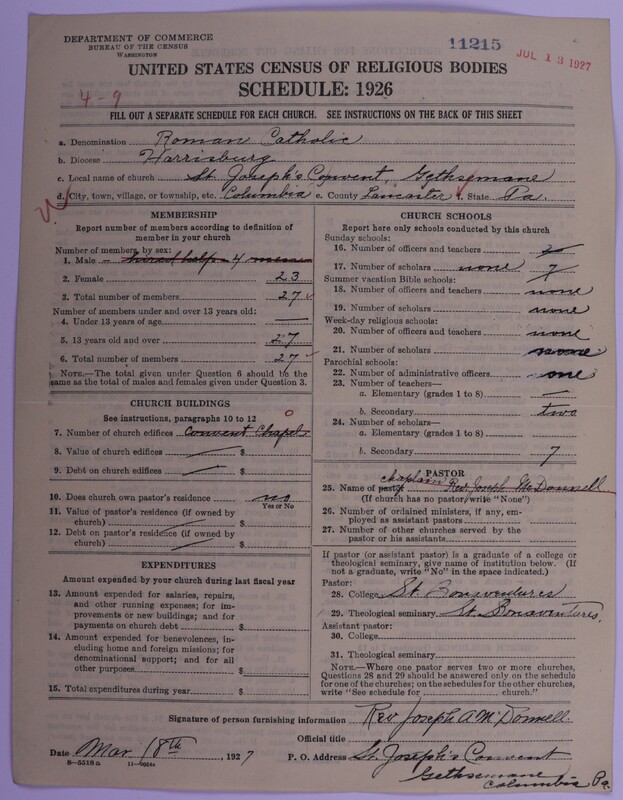 DEPARTMENT OF COMMERCE
BUREAU OF THE CENSUS
WASHINGTON
11215
JUL 13 1927
UNITED STATES CENSUS OF RELIGIOUS BODIES
SCHEDULE: 1926
4-9
FILL OUT A SEPARATE SCHEDULE FOR EACH CHURCH. SEE INSTRUCTIONS ON THE BACK OF THIS SHEET
a. Denomination Roman Catholic
b. Diocese Harrisburg
c. Local name of church St. Joseph's Convent, Gethsemane
d. City, town, village, or township, etc. Columbia e. County Lancaster f. State Pa.
MEMBERSHIP
Report number of members according to definition of
member in your church
Number of members by sex:
1. Male – hired help – 4
2. Female 23
3. Total number of members 27
Number of members under and over 13 years old:
4. Under 13 years of age —
5. 13 years old and over 27
6. Total number of members 27
NOTE.—The total given under Question 6 should be the
same as the total of males and females given under Question 3.
CHURCH BUILDINGS
See instructions, paragraphs 10 to 12
0
7. Number of church edifices Convent Chapel
8. Value of church edifices — $
9. Debt on church edifices — $
10. Does church own pastor's residence no
Yes or No
11. Value of pastor's residence (if owned by
church) — $
12. Debt on pastor's residence (if owned by
church) — $
EXPENDITURES
Amount expended by your church during last fiscal year
13. Amount expended for salaries, repairs,
and other running expenses; for im-
provements or new buildings; and for
payments on church debt $
14. Amount expended for benevolences, in-
cluding home and foreign missions; for
denominational support; and for all
other purposes $
15. Total expenditures during year $
CHURCH SCHOOLS
Report here only schools conducted by this church
Sunday schools:
16. Number of officers and teachers 2
17. Number of scholars none 7
Summer vacation Bible schools:
18. Number of officers and teachers none
19. Number of scholars none
Week-day religious schools:
20. Number of officers and teachers none
21. Number of scholars none
Parochial schools:
22. Number of administrative officers one
23. Number of teachers—
a. Elementary (grades 1 to 8) —
b. Secondary two
24. Number of scholars—
a. Elementary (grades 1 to 8)
b. Secondary 7
PASTOR
chaplain
25. Name of pastor Rev. Joseph McDonnell
(If church has no pastor, write "None")
26. Number of ordained ministers, if any, em-
ployed as assistant pastors
27. Number of other churches served by the
pastor or his assistants
If pastor (or assistant pastor) is a graduate of a college or
theological seminary, give name of institution below. (If
not a graduate, write "No" in the space indicated.)
Pastor:
28. College St. Bonaventures
29. Theological seminary St. Bonaventures.
Assistant pastor:
30. College
31. Theological seminary
NOTE.—Where one pastor serves two or more churches,
Questions 28 and 29 should be answered only on the schedule
for one of the churches; on the schedules for the other churches,
write "See schedule for church."
Signature of person furnishing information Rev. Joseph A McDonnell.
Official title
Date Mar 18th, 1927 P. O. Address St. Joseph's Convent
Gethsemane
Columbia Pa.
8—5518a